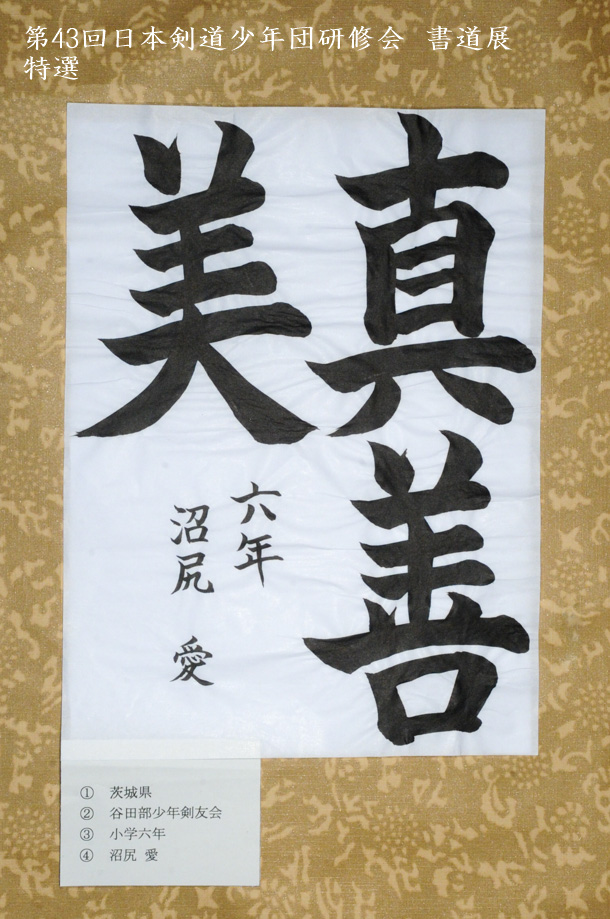 第43回日本剣道少年団研修会 書道展
特選
真善
美
六年
沼尻 愛
① 茨城県
② 谷田部少年剣友会
③ 小学六年
④ 沼尻 愛